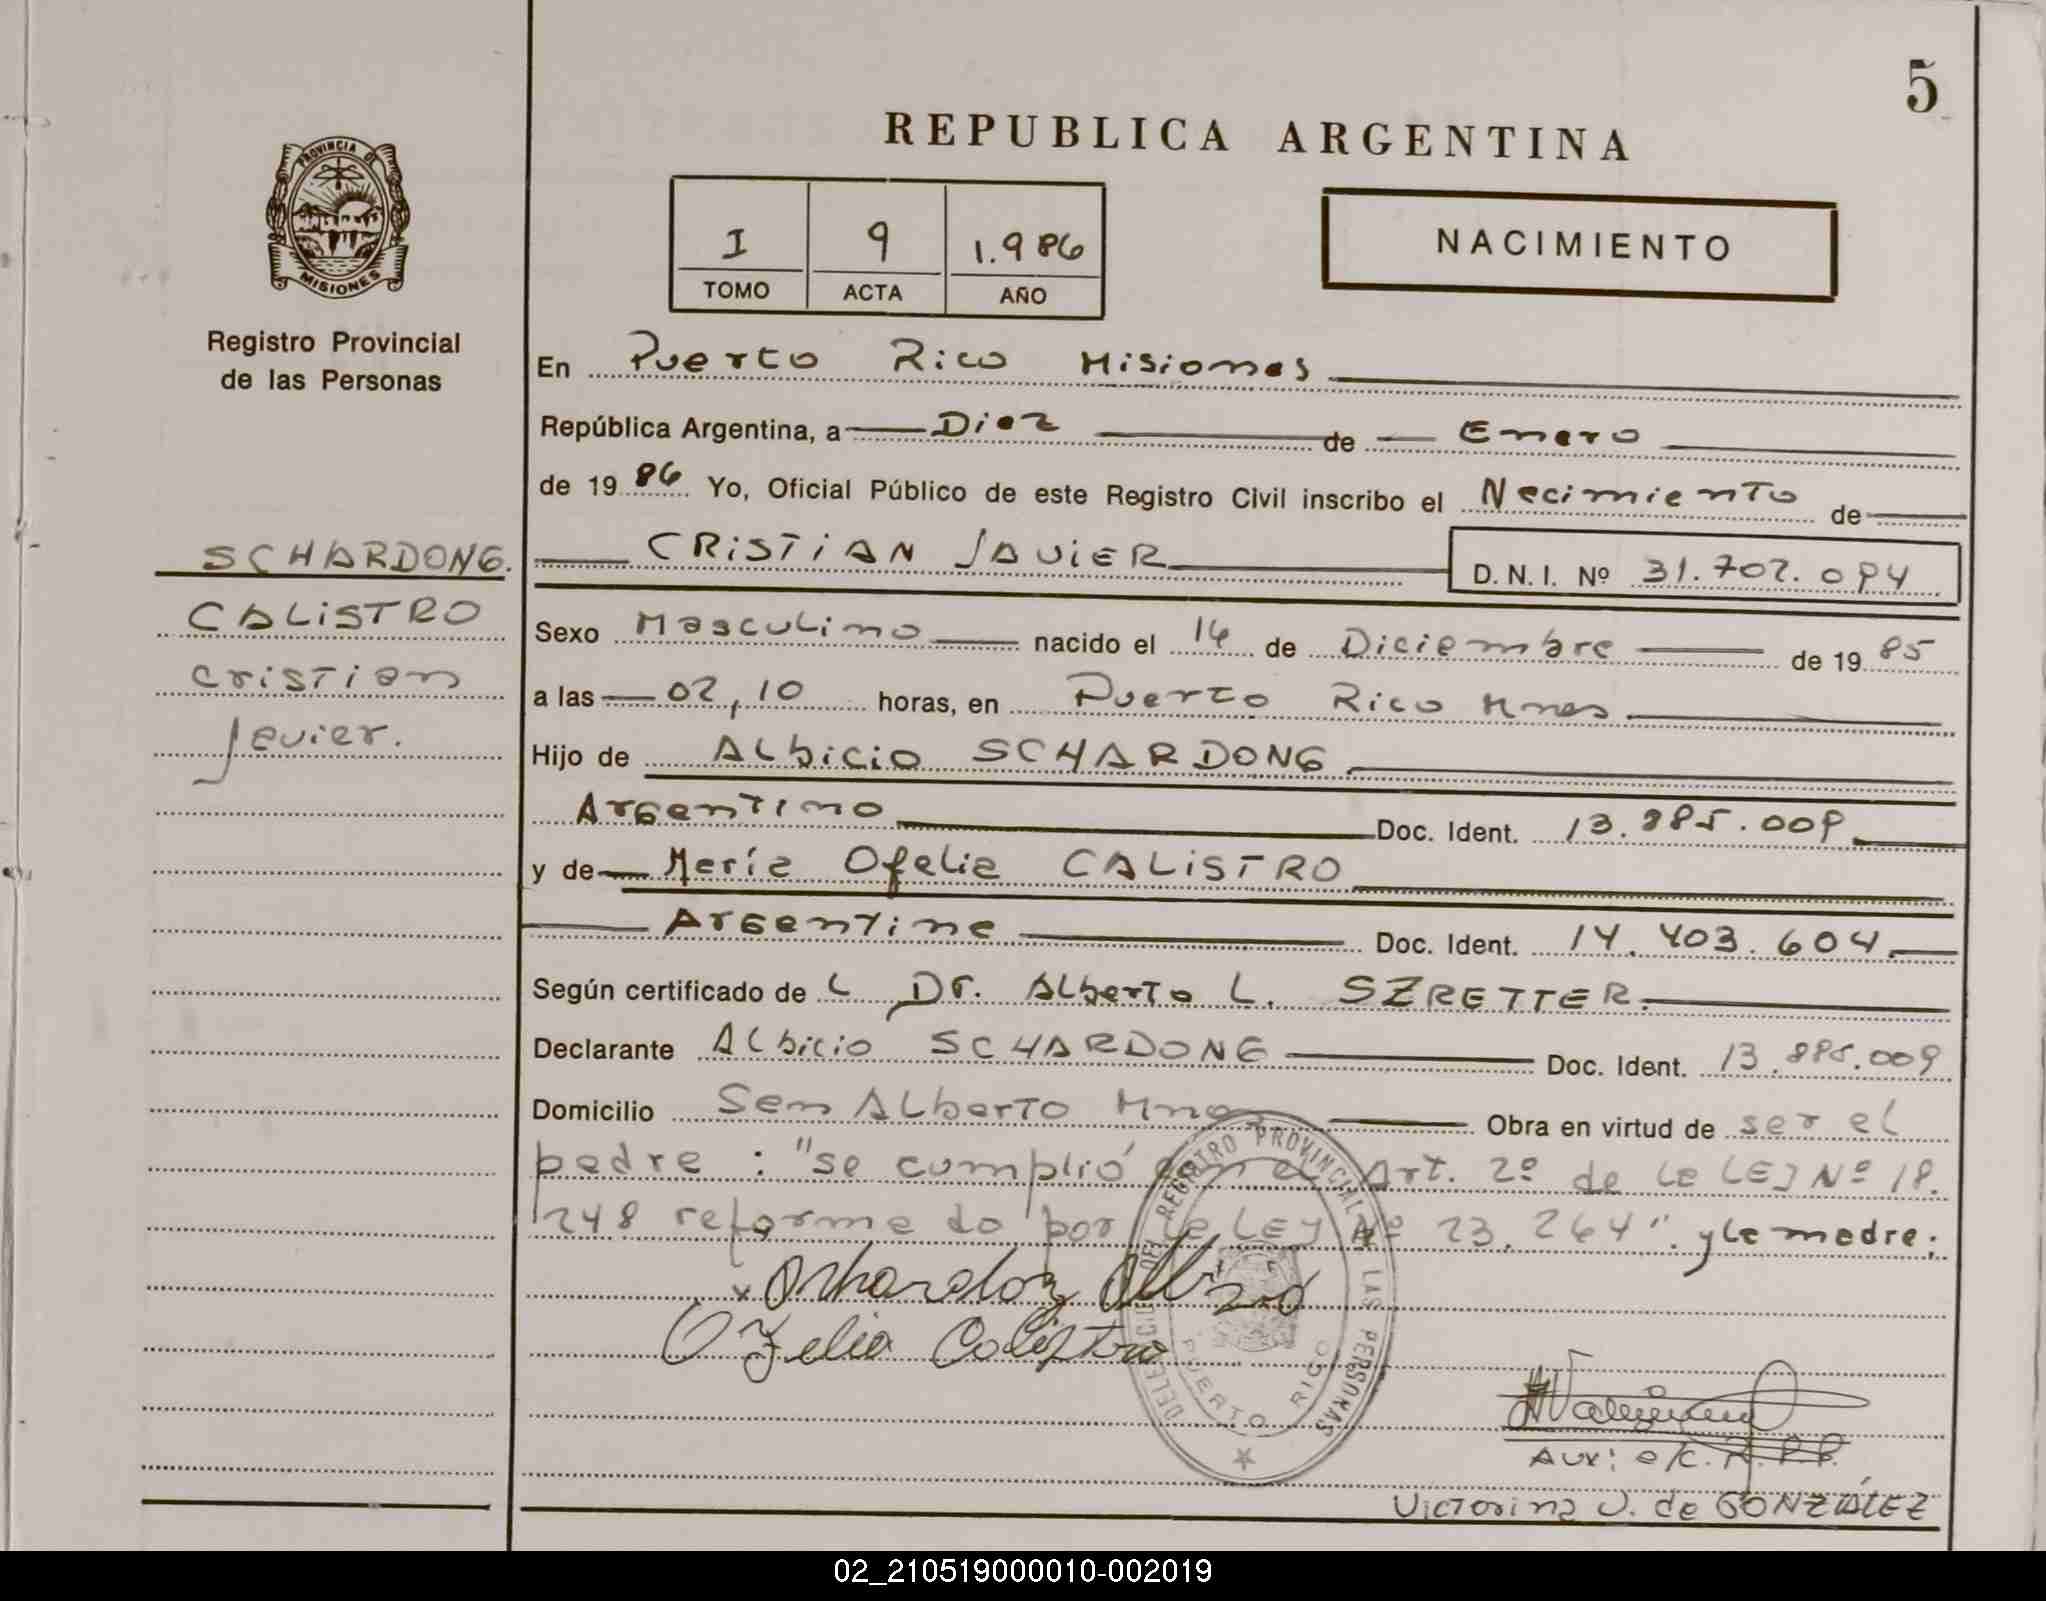 5
REPUBLICA ARGENTINA
PROVINCIA DE
MISIONES
Registro Provincial
de las Personas
I 9 1.986
TOMO ACTA AÑO
NACIMIENTO
En Puerto Rico Misiones
República Argentina, a Diez de Enero
de 19 86 Yo, Oficial Público de este Registro Civil inscribo el Nacimiento de
SCHARDONG.
CALISTRO
Cristian
Javier.
CRISTIAN JAVIER D.N.I. Nº 31.702.094
Sexo Masculino nacido el 14 de Diciembre de 19 85
a las 02,10 horas, en Puerto Rico Mnes
Hijo de Albicio SCHARDONG
Argentino Doc. Ident. 13.885.009
y de María Ofelia CALISTRO
Argentina Doc. Ident. 14.403.604
Según certificado de L Dr. Alberto L. SZRETTER
Declarante Albicio SCHARDONG Doc. Ident. 13.885.009
Domicilio San Alberto Mnes Obra en virtud de ser el
padre : "se cumplió con el Art. 2º de la LEJ Nº 18.
248 reformado por la LEY Nº 23.264". y la madre:
Ofelia Calistro
DEL REGISTRO PROVINCIAL DE LAS PERSONAS
PUERTO RICO
Aux: a/c. R.P.P.
Victorina V. de GONZÁLEZ
02_210519000010-002019